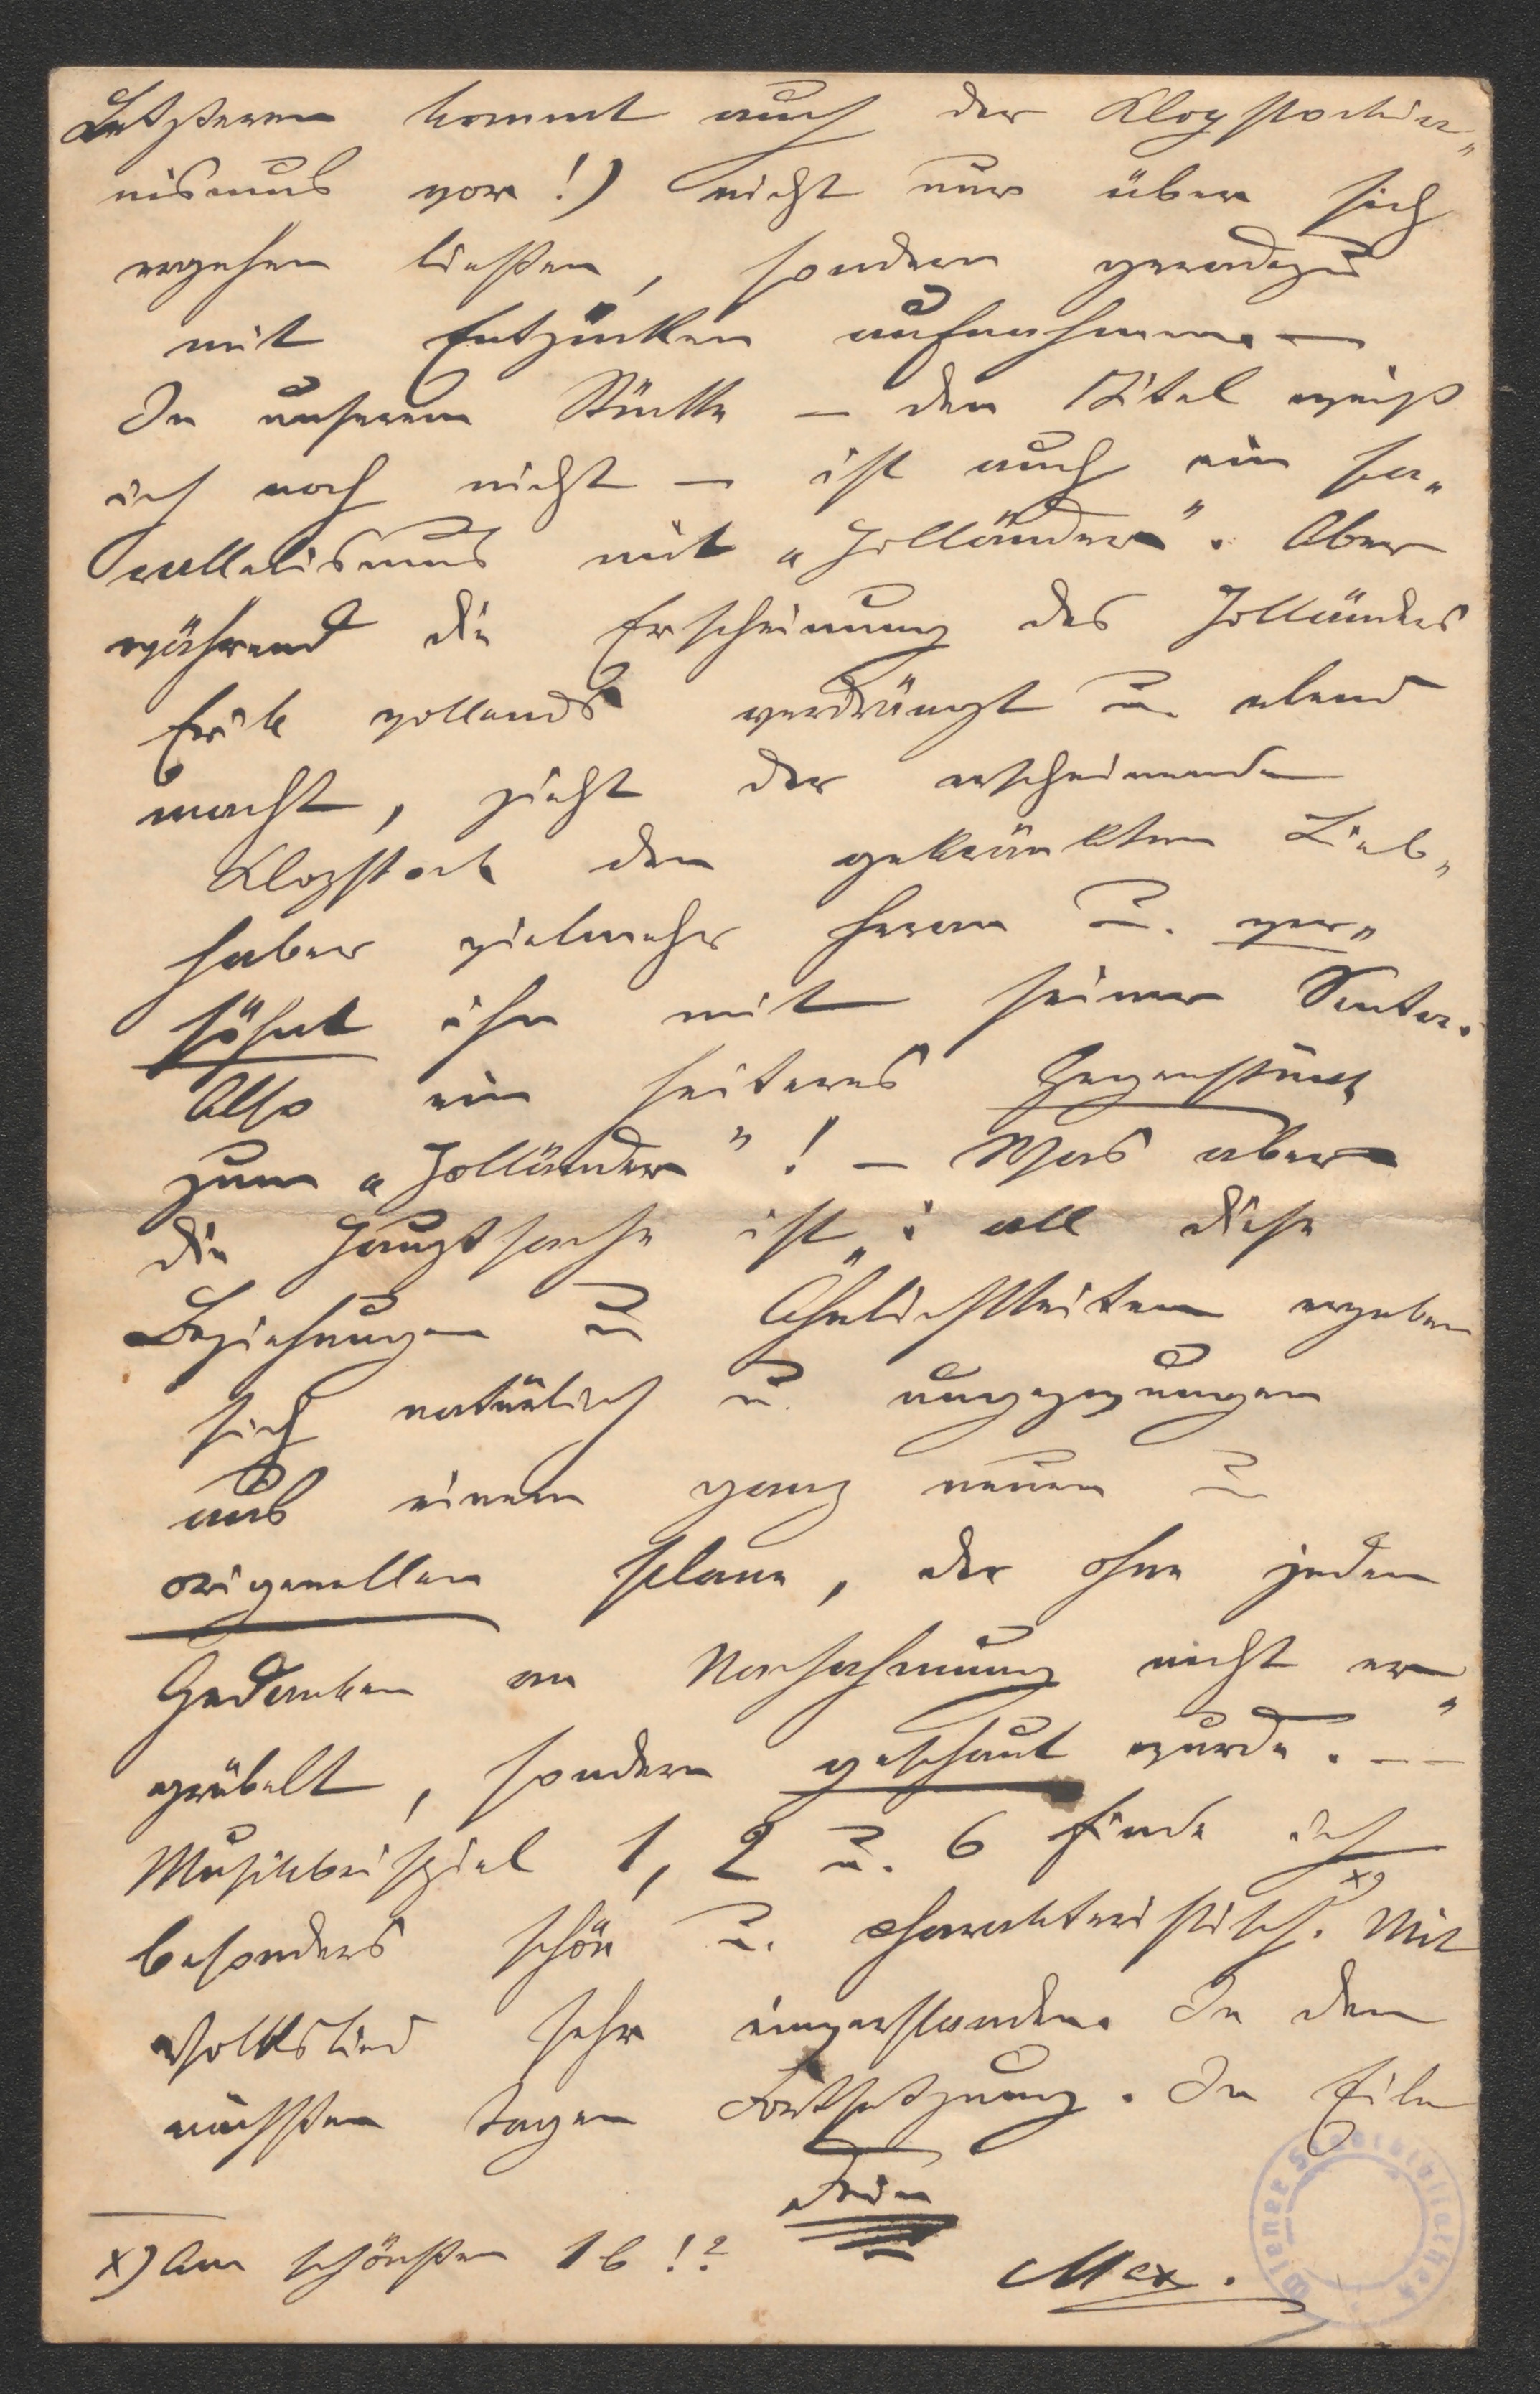 Letzteren kommt auch der Klopstockia„
nismus vor!) nicht nur über sich
ergehen ließen, sondern geradezu
mit Entzücken aufnahmen. —
In unserem Stücke — den Titel weiß
ich noch nicht — ist auch ein Pa„
rallelismus mit „Holländer". Aber
während die Erscheinung des Holländers
Erik vollends verdrängt u. elend
macht, zieht der erscheinende
Klopstock den gekränkten Lieb„
haber vielmehr heran u. ver„
söhnt ihn mit seiner Senta.
Also ein heiteres Gegenstück
zum „Holländer"! — Was aber
die Hauptsache ist: all diese
Beziehungen u Ähnlichkeiten ergeben
sich natürlich u. ungezwungen
aus einem ganz neuen u
originellen Plane, der ohne jeden
Gedanken an Nachahmung nicht er„
grübelt, sondern geschaut wurde. — —
Musikbeispiel 1, 2 u. 6 finde ich
besonders schön u. charakteristisch. x) Mit
Volkslied sehr einverstanden. In den
nächsten Tagen Fortsetzung. In Eile
Dein
x) Am schönsten 1b!?
Max.
Wiener Stadtbibliothek